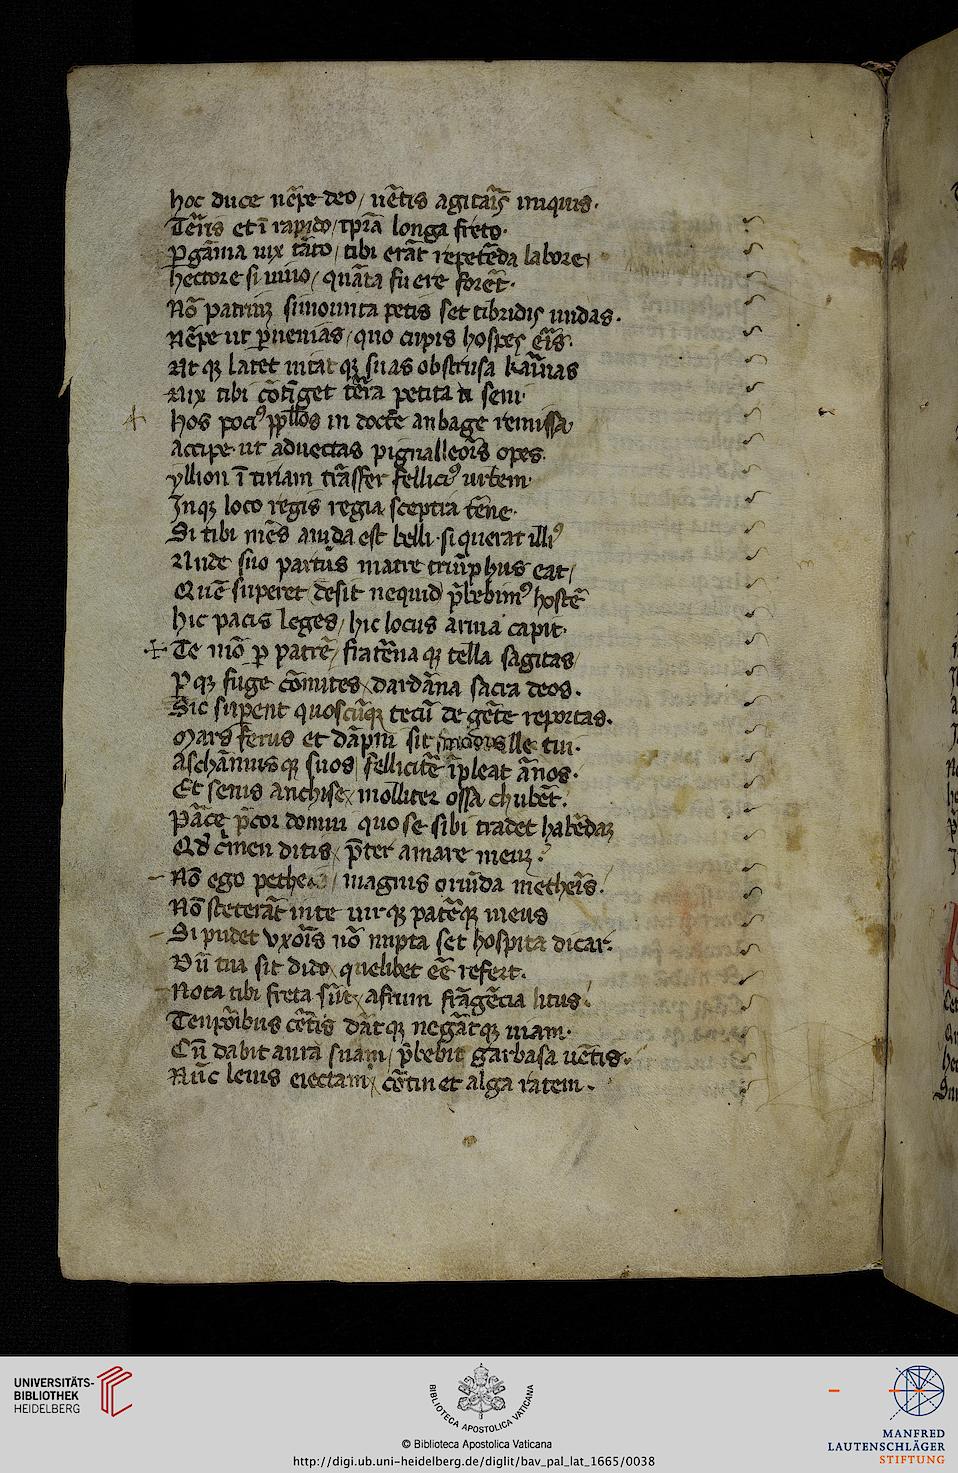 hoc duce nēpe deo / uētis agitaīs iniquis.
Tēris et ī rapido / tpīa longa freto.
Pgāma uix tāto / tibi erāt repetēda labore
hectore si uiuo / quāta fuere forēt.
Nō patriū simounta petis set tibridis undas.
Nēpe ut puenias / quo cupis hospes eīs.
Vt q; latet uitat q; suas obstrusa
Vix tibi cōtīget tēra petita seni.
Hos poci⁹ ppłłos in docte anbage remissa
accipe ut aduectas pigmalleoīs opes.
yllion ī tiriam trāsfer fellici⁹ urbem.
Inq; loco regis regia sceptra tēne.
Si tibi mēs auida est belli si querat
Vnde suo partus marte triūphus eat /
Quē superet desit nequid p̄bebim⁹ hostē
hic pacis leges / hic locus arma capit.
Te mō p patrē / fratēna q; tella sagitas /
Pq; fuge cōmites dardāna sacra deos.
Sic supent quoscūq; tecū de gēte reportas.
Mars ferus et dāpni sit ille tui.
Aschānius q; suos fellicitē īpleat ānos.
Et senis anchise molliter ossa chubēt.
Pāce pcor domui quo se sibi tradet habēdaz
Qd cīmen ditis pter amare meuz.
Nō ego / magnis oriūda
Nō steterāt inte uir q; patēq; meus
Si pudet vxoīs nō nupta set hospita dicar.
Dū tua sit dido quelibet eē refert.
Nota tibi freta sūt afrum frāgētia litus.
Tenporibus cētis dāt q; negāt q; uiam.
Cū dabit aura suam / p̄bebit garbasa uētis.
Nūc leuis eiectam cōtin et alga ratem.
UNIVERSITÄTS-
BIBLIOTHEK
HEIDELBERG
BIBLIOTECA APOSTOLICA VATICANA
© Biblioteca Apostolica Vaticana
http://digi.ub.uni-heidelberg.de/diglit/bav_pal_lat_1665/0038
MANFRED
LAUTENSCHLÄGER
STIFTUNG